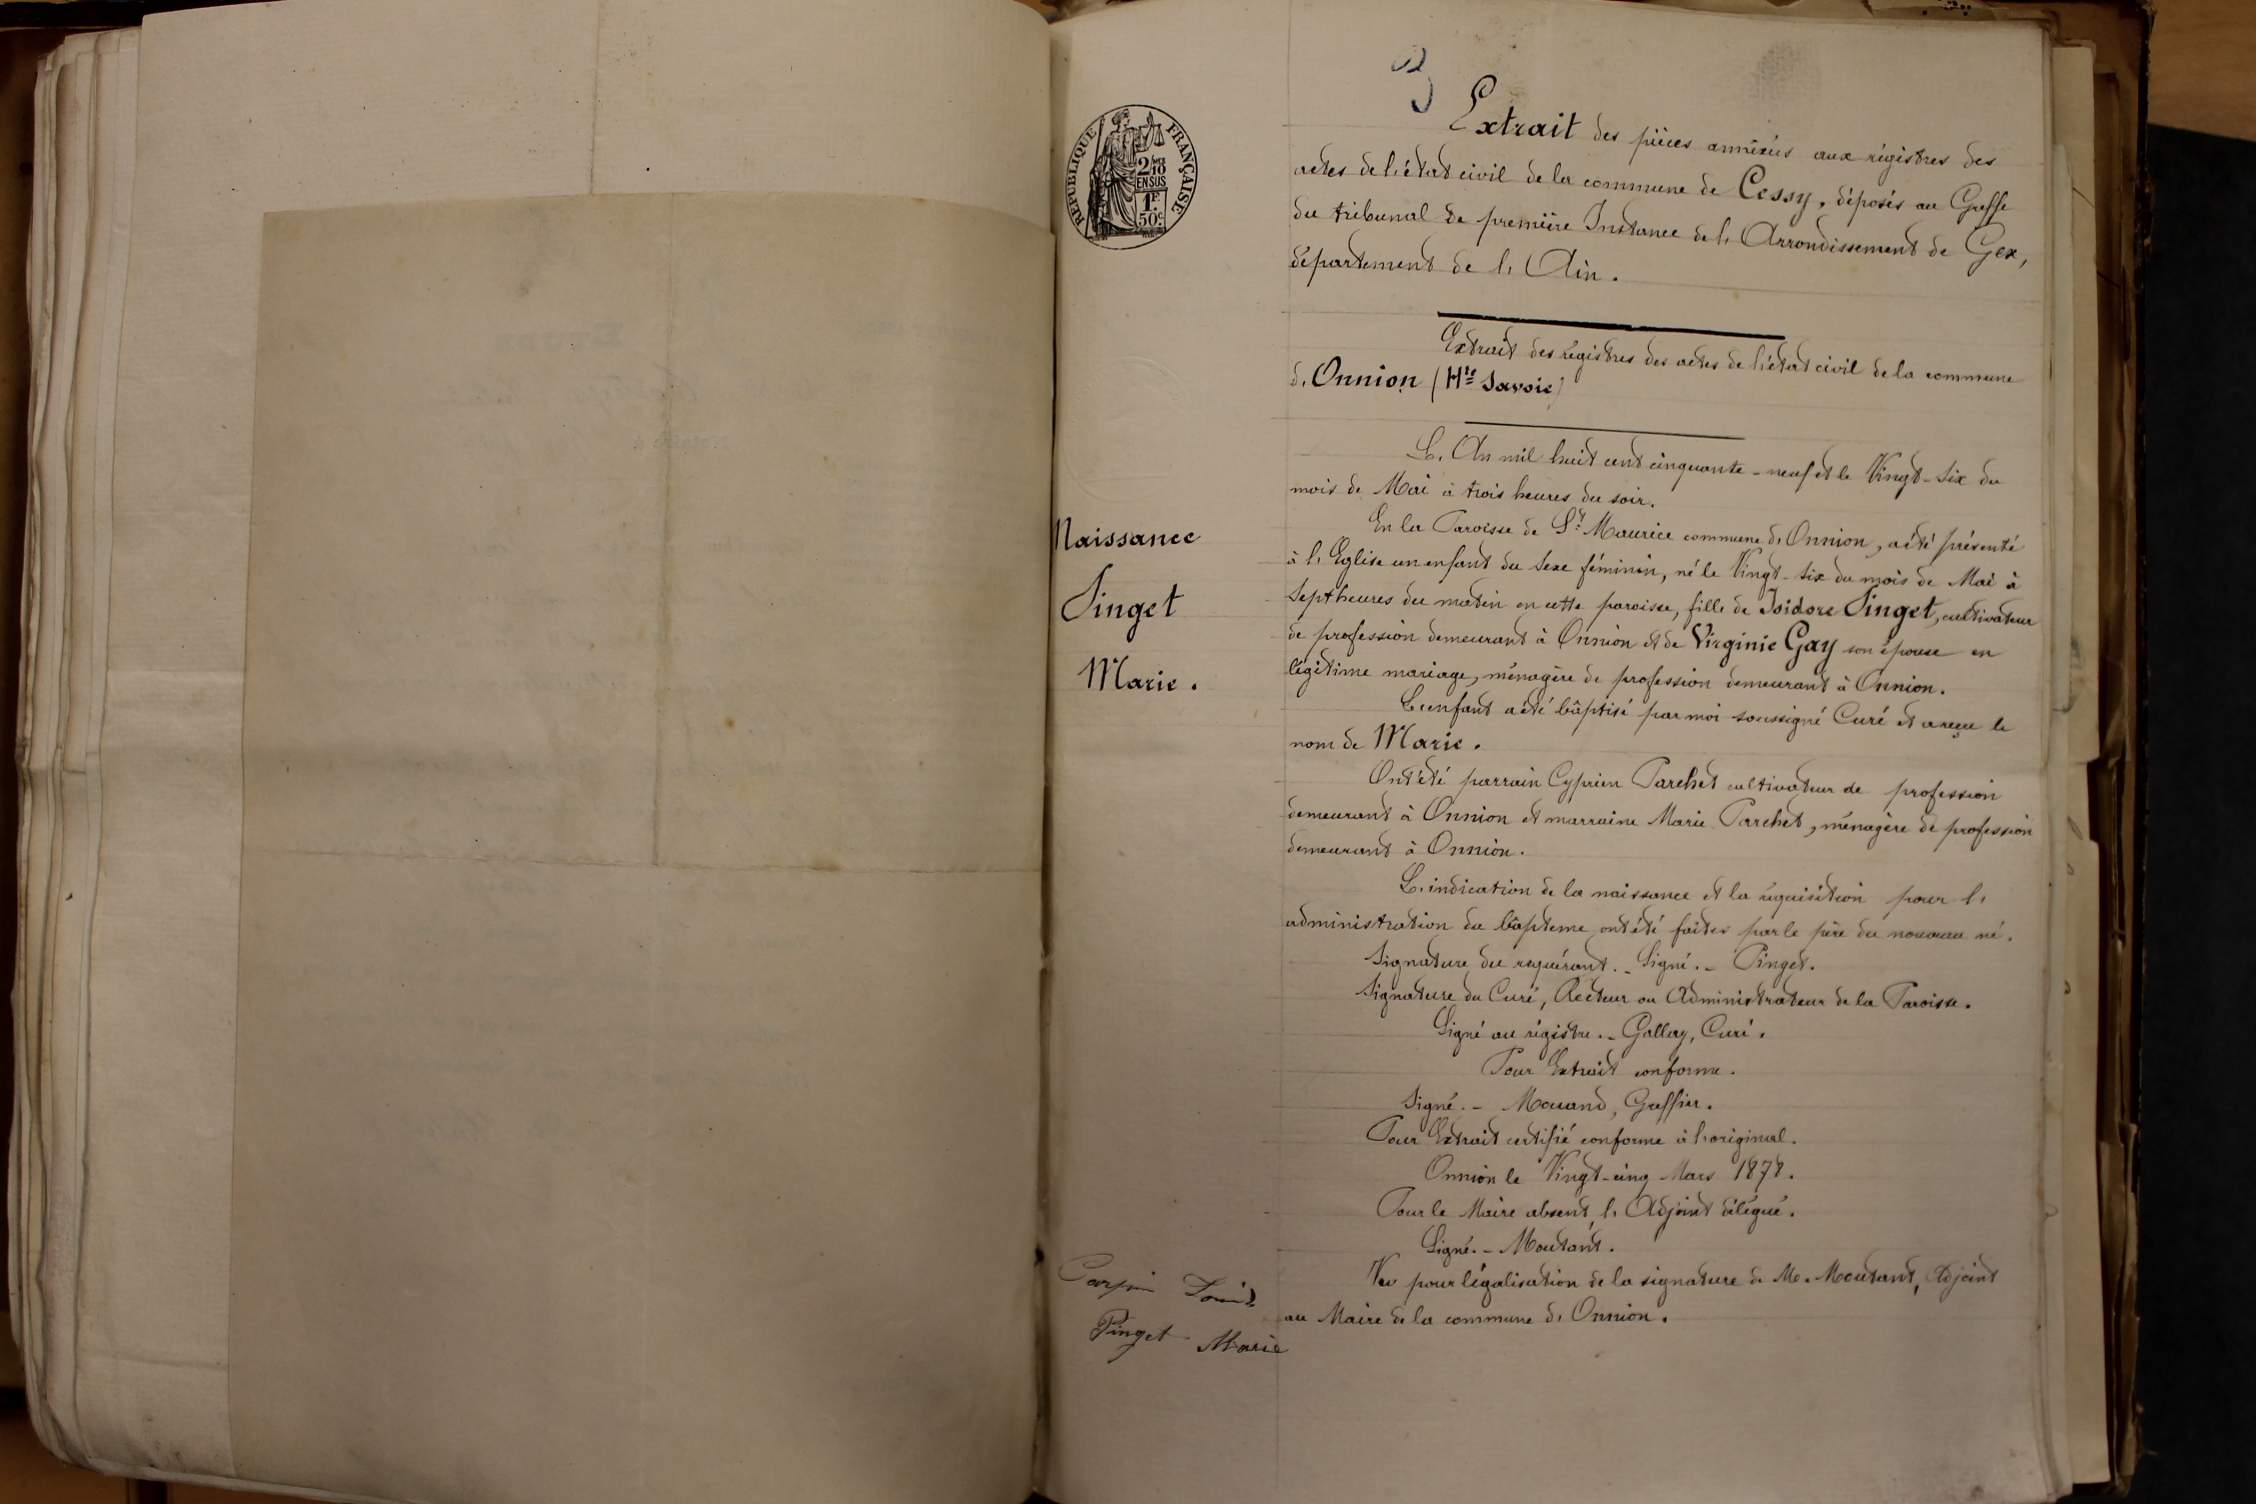 RÉPUBLIQUE FRANÇAISE
2/10
EN SUS
1F.
50c.
Extrait des pièces annéxés aux régistres des
actes de l'état civil de la commune de Cessy, déposés au Greffe
du tribunal de première Instance de l'Arrondissement de Gex,
département de l'Ain.
Extrait des régistres des actes de l'état civil de la commune
d'Onnion (Hte Savoie)
L'An mil huit cent cinquante-neuf et le Vingt-six du
mois de Mai à trois heures du soir.
Naissance
Pinget
Marie.
En la Paroisse de St Maurice commune d'Onnion, a été présenté
à l'Eglise un enfant du sexe féminin, né le Vingt-six du mois de Mai à
sept heures du matin en cette paroisse, fille de Isidore Pinget, cultivateur
de profession demeurant à Onnion et de Virginie Gay son épouse en
légitime mariage, ménagère de profession demeurant à Onnion.
L'enfant a été bâptisé par moi soussigné Curé et a reçu le
nom de Marie.
Ont été parrain Cyprien Parchet cultivateur de profession
demeurant à Onnion et marraine Marie Parchet, ménagère de profession
demeurant à Onnion.
L'indication de la naissance et la réquisition pour l'
administration du bâpteme ont été faites par le père du nouveau né.
Signature du requérant. - Signé. - Pinget.
Signature du Curé, Recteur ou Administrateur de la Paroisse.
Signé au régistre. - Gallay, Curé.
Pour Extrait conforme.
Signé. - Mouand, Greffier.
Pour Extrait certifié conforme à l'original.
Onnion le Vingt-cinq Mars 1878.
Pour le Maire absent, l'Adjoint délégué.
Signé. - Moutant.
Vu pour légalisation de la signature de Mr. Moutant, Adjoint
au Maire de la commune d'Onnion.
Carpin Louis
Pinget Marie